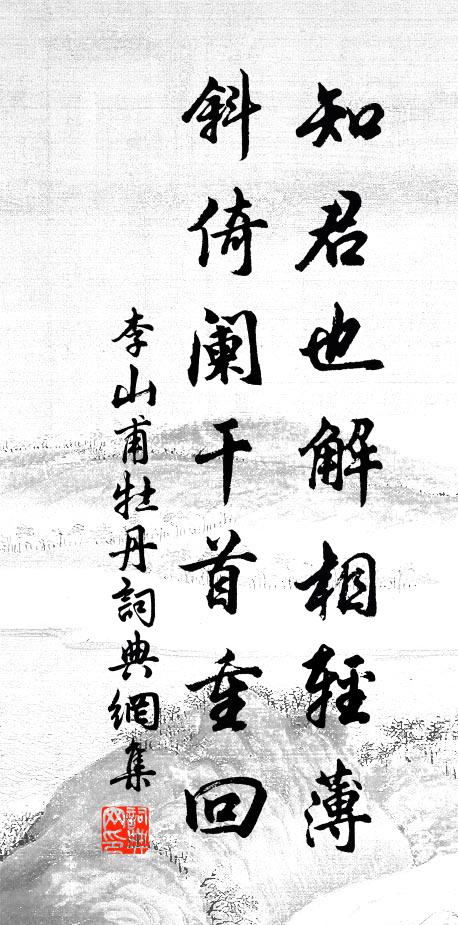 知君也解相輕薄
斜倚阑干首重回
李山甫牡丹詞典網集